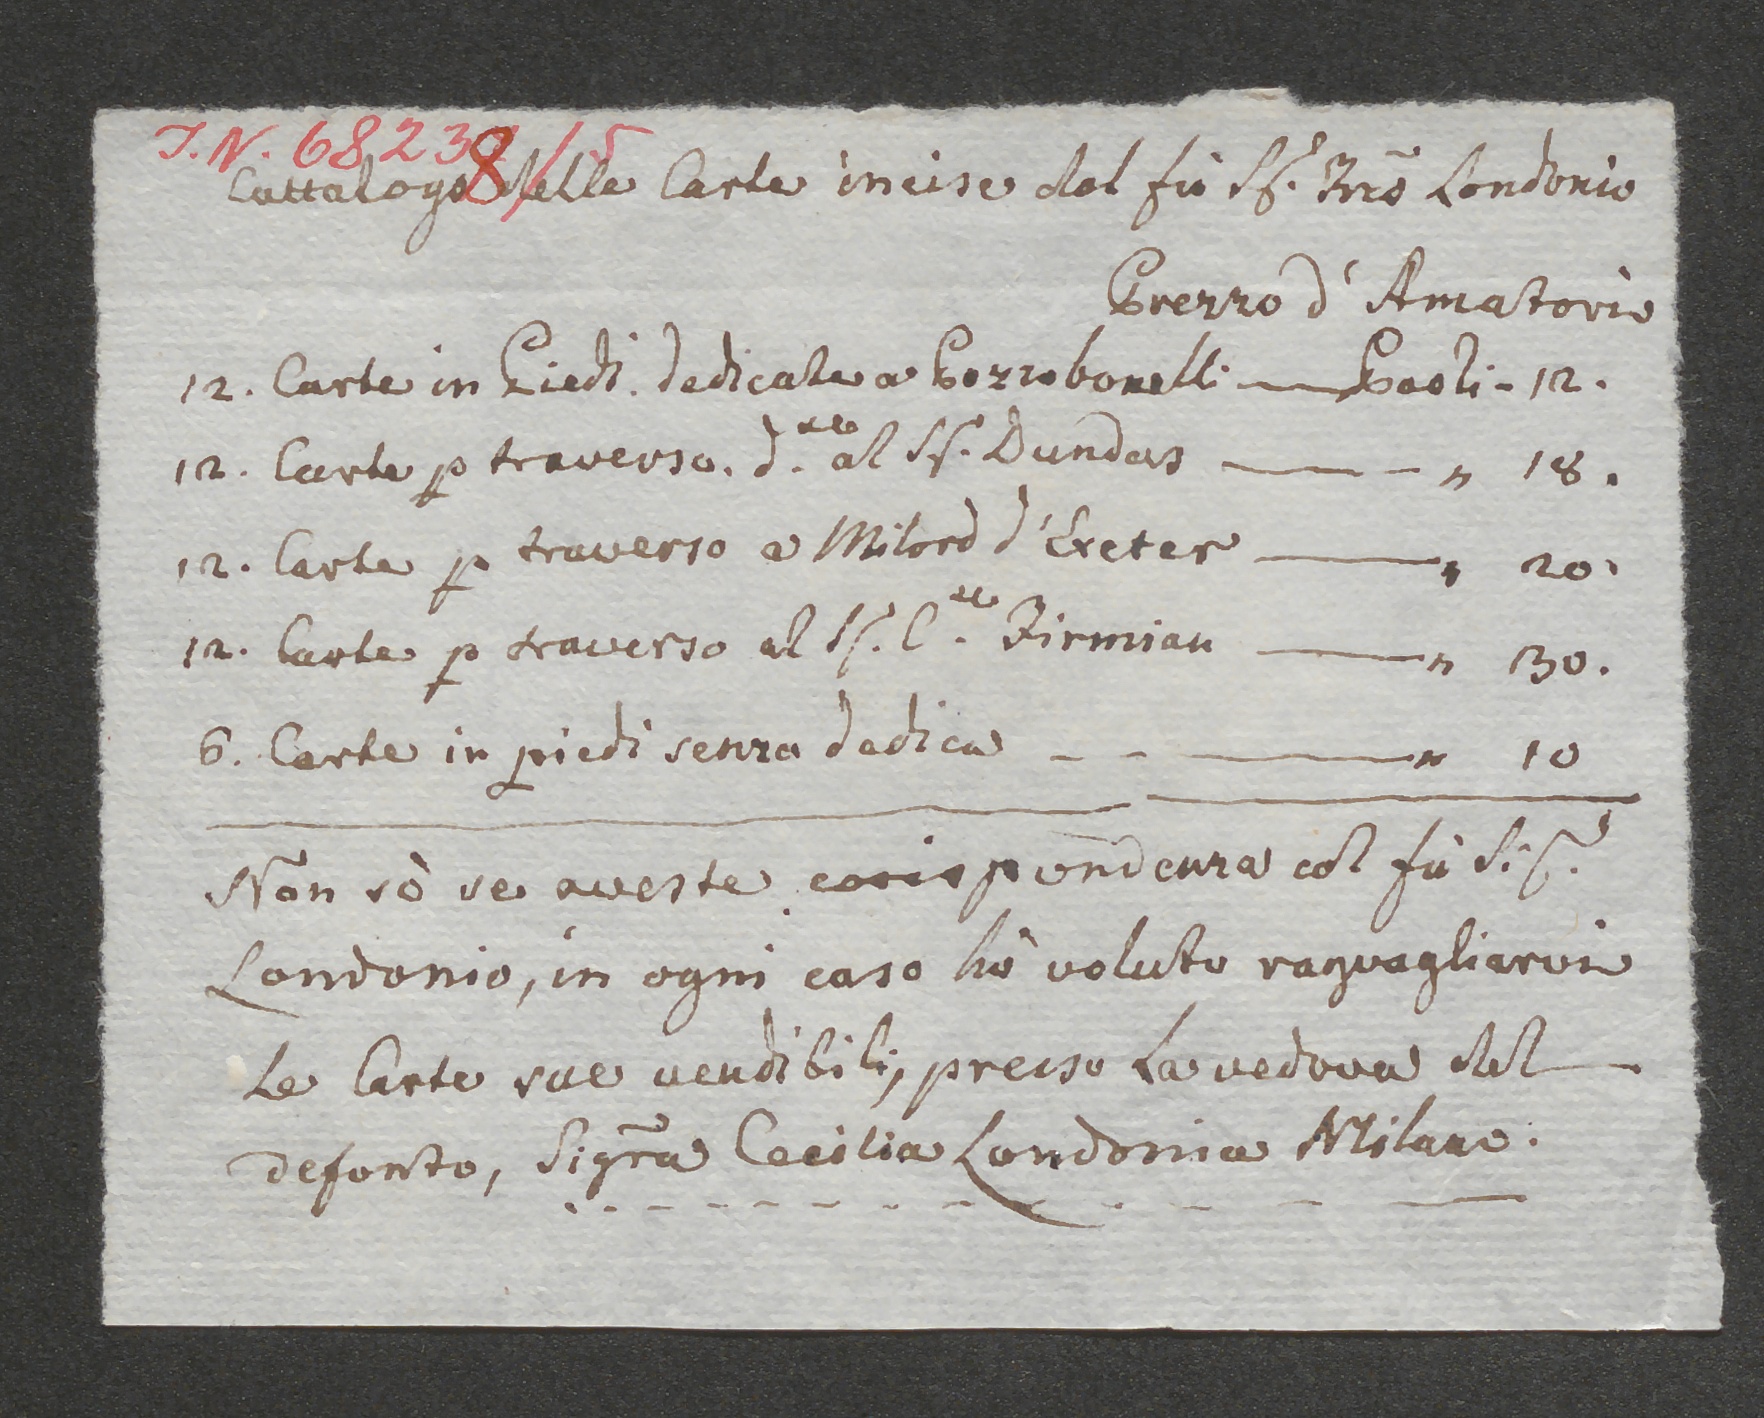 I.N. 68238/15
Cattalogo delle Carte incise dal fù Sig.r Frnco Londonio
Prezzo d'Amatori
12. Carte in Piedi. dedicate a Pozzobonelli — Paoli - 12.
12. Carte p traverso. d.te al Sig. Dundas — " 18.
12. Carte p traverso a Milord d'Exeter — " 20.
12. Carte p traverso al Sig. C.te Firmian — " 30.
6. Carte in piedi senza dedica - - — " 10
Non sò se aveste corispondenza col fù Sig.r
Londonio, in ogni caso hò voluto raguagliarvi
Le Carte sue vendibili, presso La vedova del
defonto, Sigra Cecilia Londonia Milano.